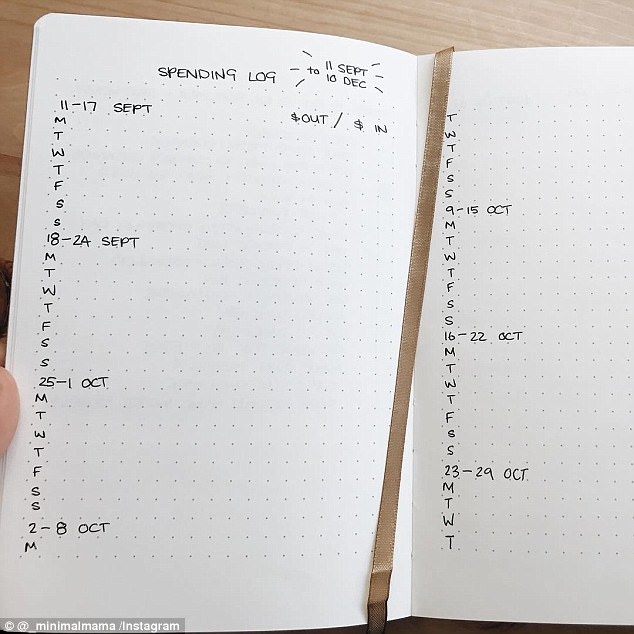 SPENDING LOG
11 SEPT
to 10 DEC
11-17 SEPT
$OUT / $ IN
M
T
W
T
F
S
S
18-24 SEPT
M
T
W
T
F
S
S
25-1 OCT
M
T
W
T
F
S
S
2-8 OCT
M
T
W
T
F
S
S
9-15 OCT
M
T
W
T
F
S
S
16-22 OCT
M
T
W
T
F
S
S
23-29 OCT
M
T
W
T
© @_minimalmama /Instagram